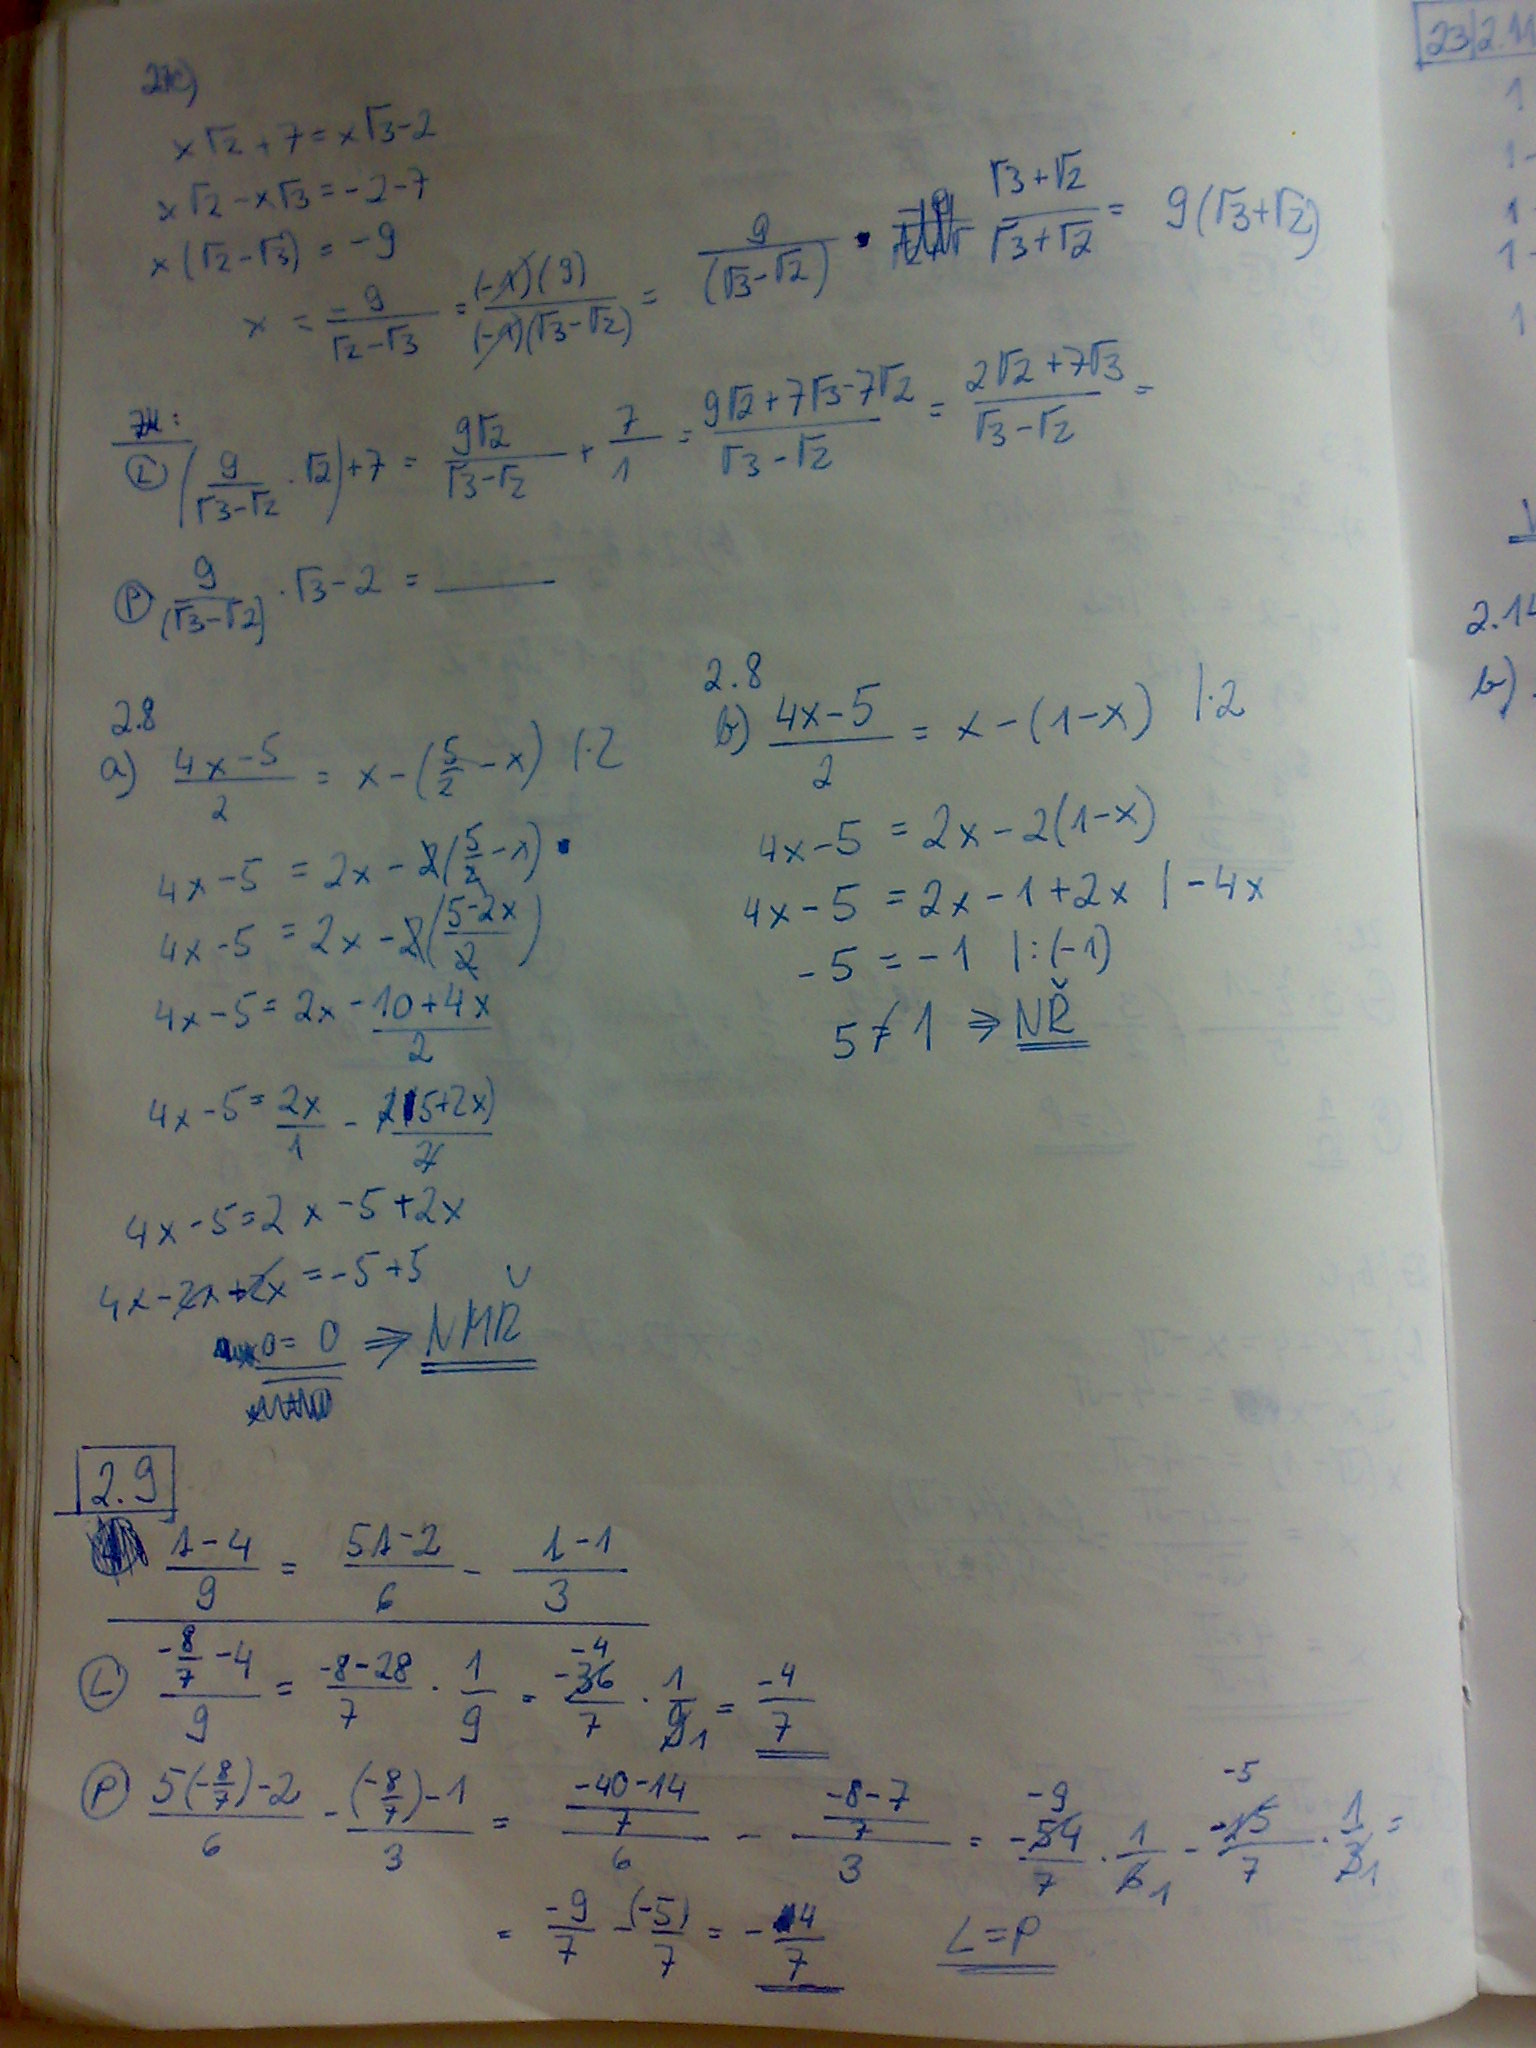 27c)
x√2 + 7 = x√3 - 2
x√2 - x√3 = -2 - 7
x(√2 - √3) = -9
x = -9/(√2-√3) = (-1)(9)/((-1)(√3-√2)) = 9/(√3-√2) · (√3+√2)/(√3+√2) = 9(√3+√2)
Zk:
L (9/(√3-√2) · √2) + 7 = 9√2/(√3-√2) + 7/1 = (9√2+7√3-7√2)/(√3-√2) = (2√2+7√3)/(√3-√2) =
P 9/(√3-√2) · √3 - 2 =
2.8
a) (4x-5)/2 = x - (5/2 - x) |·2
4x - 5 = 2x - 2(5/2 - x)
4x - 5 = 2x - 2((5-2x)/2)
4x - 5 = 2x - (10+4x)/2
4x - 5 = 2x/1 - 2(5+2x)/2
4x - 5 = 2x - 5 + 2x
4x - 2x + 2x = -5 + 5
0 = 0 ⇒ NMŘ
2.8
b) (4x-5)/2 = x - (1-x) |·2
4x - 5 = 2x - 2(1-x)
4x - 5 = 2x - 1 + 2x | -4x
-5 = -1 |:(-1)
5 ≠ 1 ⇒ NŘ
2.9
(1-4)/9 = (51-2)/6 - (1-1)/3
L (-8/7 - 4)/9 = (-8-28)/7 · 1/9 = -36/7 -4 · 1/9 1 = -4/7
P (5(-8/7)-2)/6 - ((-8/7)-1)/3 = ((-40-14)/7)/6 - ((-8-7)/7)/3 = -54/7 -9 · 1/6 1 - -15/7 -5 · 1/3 1 =
= -9/7 - (-5)/7 = -4/7 L=P
23/2.11
1
1-
1
1-
1
2.14
b)